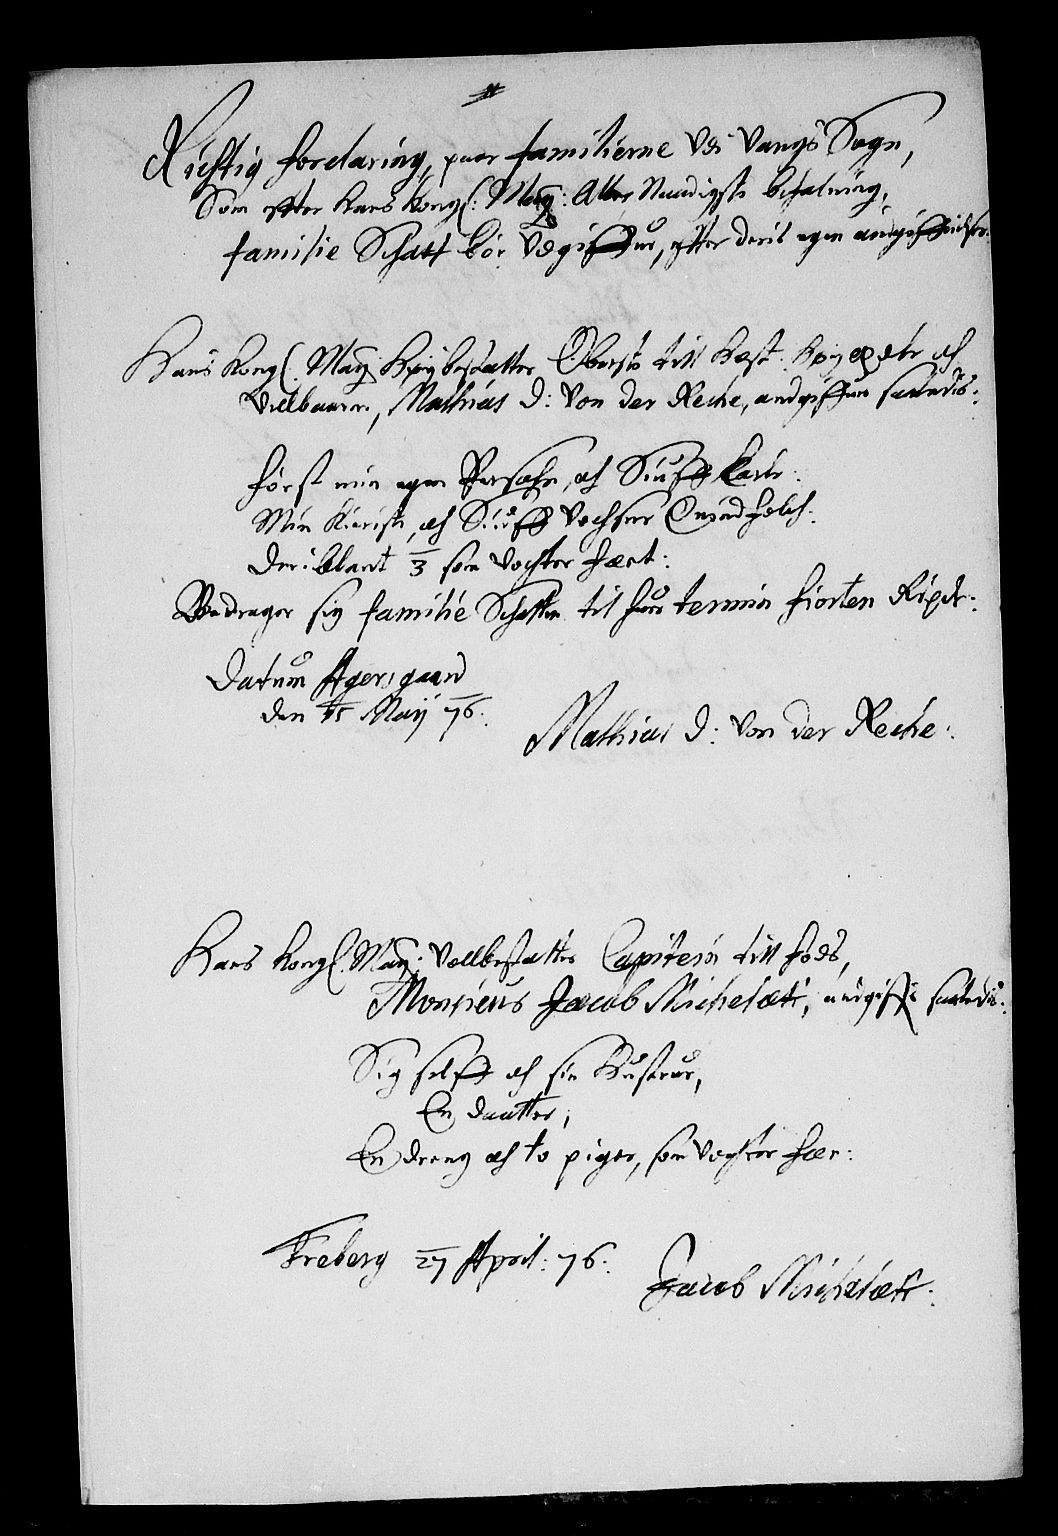 Richtig forclaring, paa familierne Udi Vangs Sogn,
Som efter Hans Kongl: May: Aller Naadigste befalning,
familie Schatt bör Udgiffue, efter deris egen angiffuelser.
Hans Kongl. May: Höybestalter Oberste till Hest. Höyedle och
Velbaarne, Mathias D: Von der Recke, andgiffuer saaledis:
først min egen Persohn, och Siuff Karle:
Min Kieriste, och Siuff Vochsne Quindfolch:
Der iblant 3 som Vochter fæet:
Bedrager sig familie Schatten til huer termin fiorten Rixdr:
Datum Agersgaard
den 15 Maij 76.
Mathias D: Von der Recke:
Hans Kongl. May: Vellbestalter Capitein till fods,
Monsieur Jacob Micheletti, andgiffr saaledis:
Sig selff och sin Hustrue,
En daatter,
En dreng och to piger, som Vochter fær:
Freberg 27 April: 76:
Jacob Micheletti: